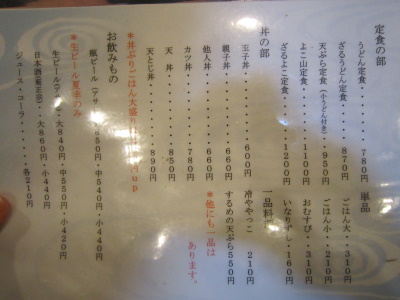 定食の部
うどん定食・・・・・・780円
ざるうどん定食・・・・870円
天ぷら定食(小うどん付き)・・950円
よこ山定食・・・・・1100円
ざるよこ定食・・・・1200円
単品
ごはん大・・310円
ごはん小・・210円
おむすび・・310円
いなりずし・160円
丼の部
玉子丼・・・・・600円
親子丼・・・・・660円
他人丼・・・・・660円
カツ丼・・・・・780円
天丼・・・・・850円
天とじ丼・・・・・890円
一品料
冷ややっこ 210円
するめの天ぷら550円
*他にも一品は
あります。
*丼ぶりごはん大盛り 円up
お飲みもの
瓶ビール(アサ 850円・中540円・小440円
*生ビール夏季のみ
生ビール 大840円・中550円・小420円
日本酒 正宗)・・大860円・小440円
ジュース・コーラ・・・・・各210円